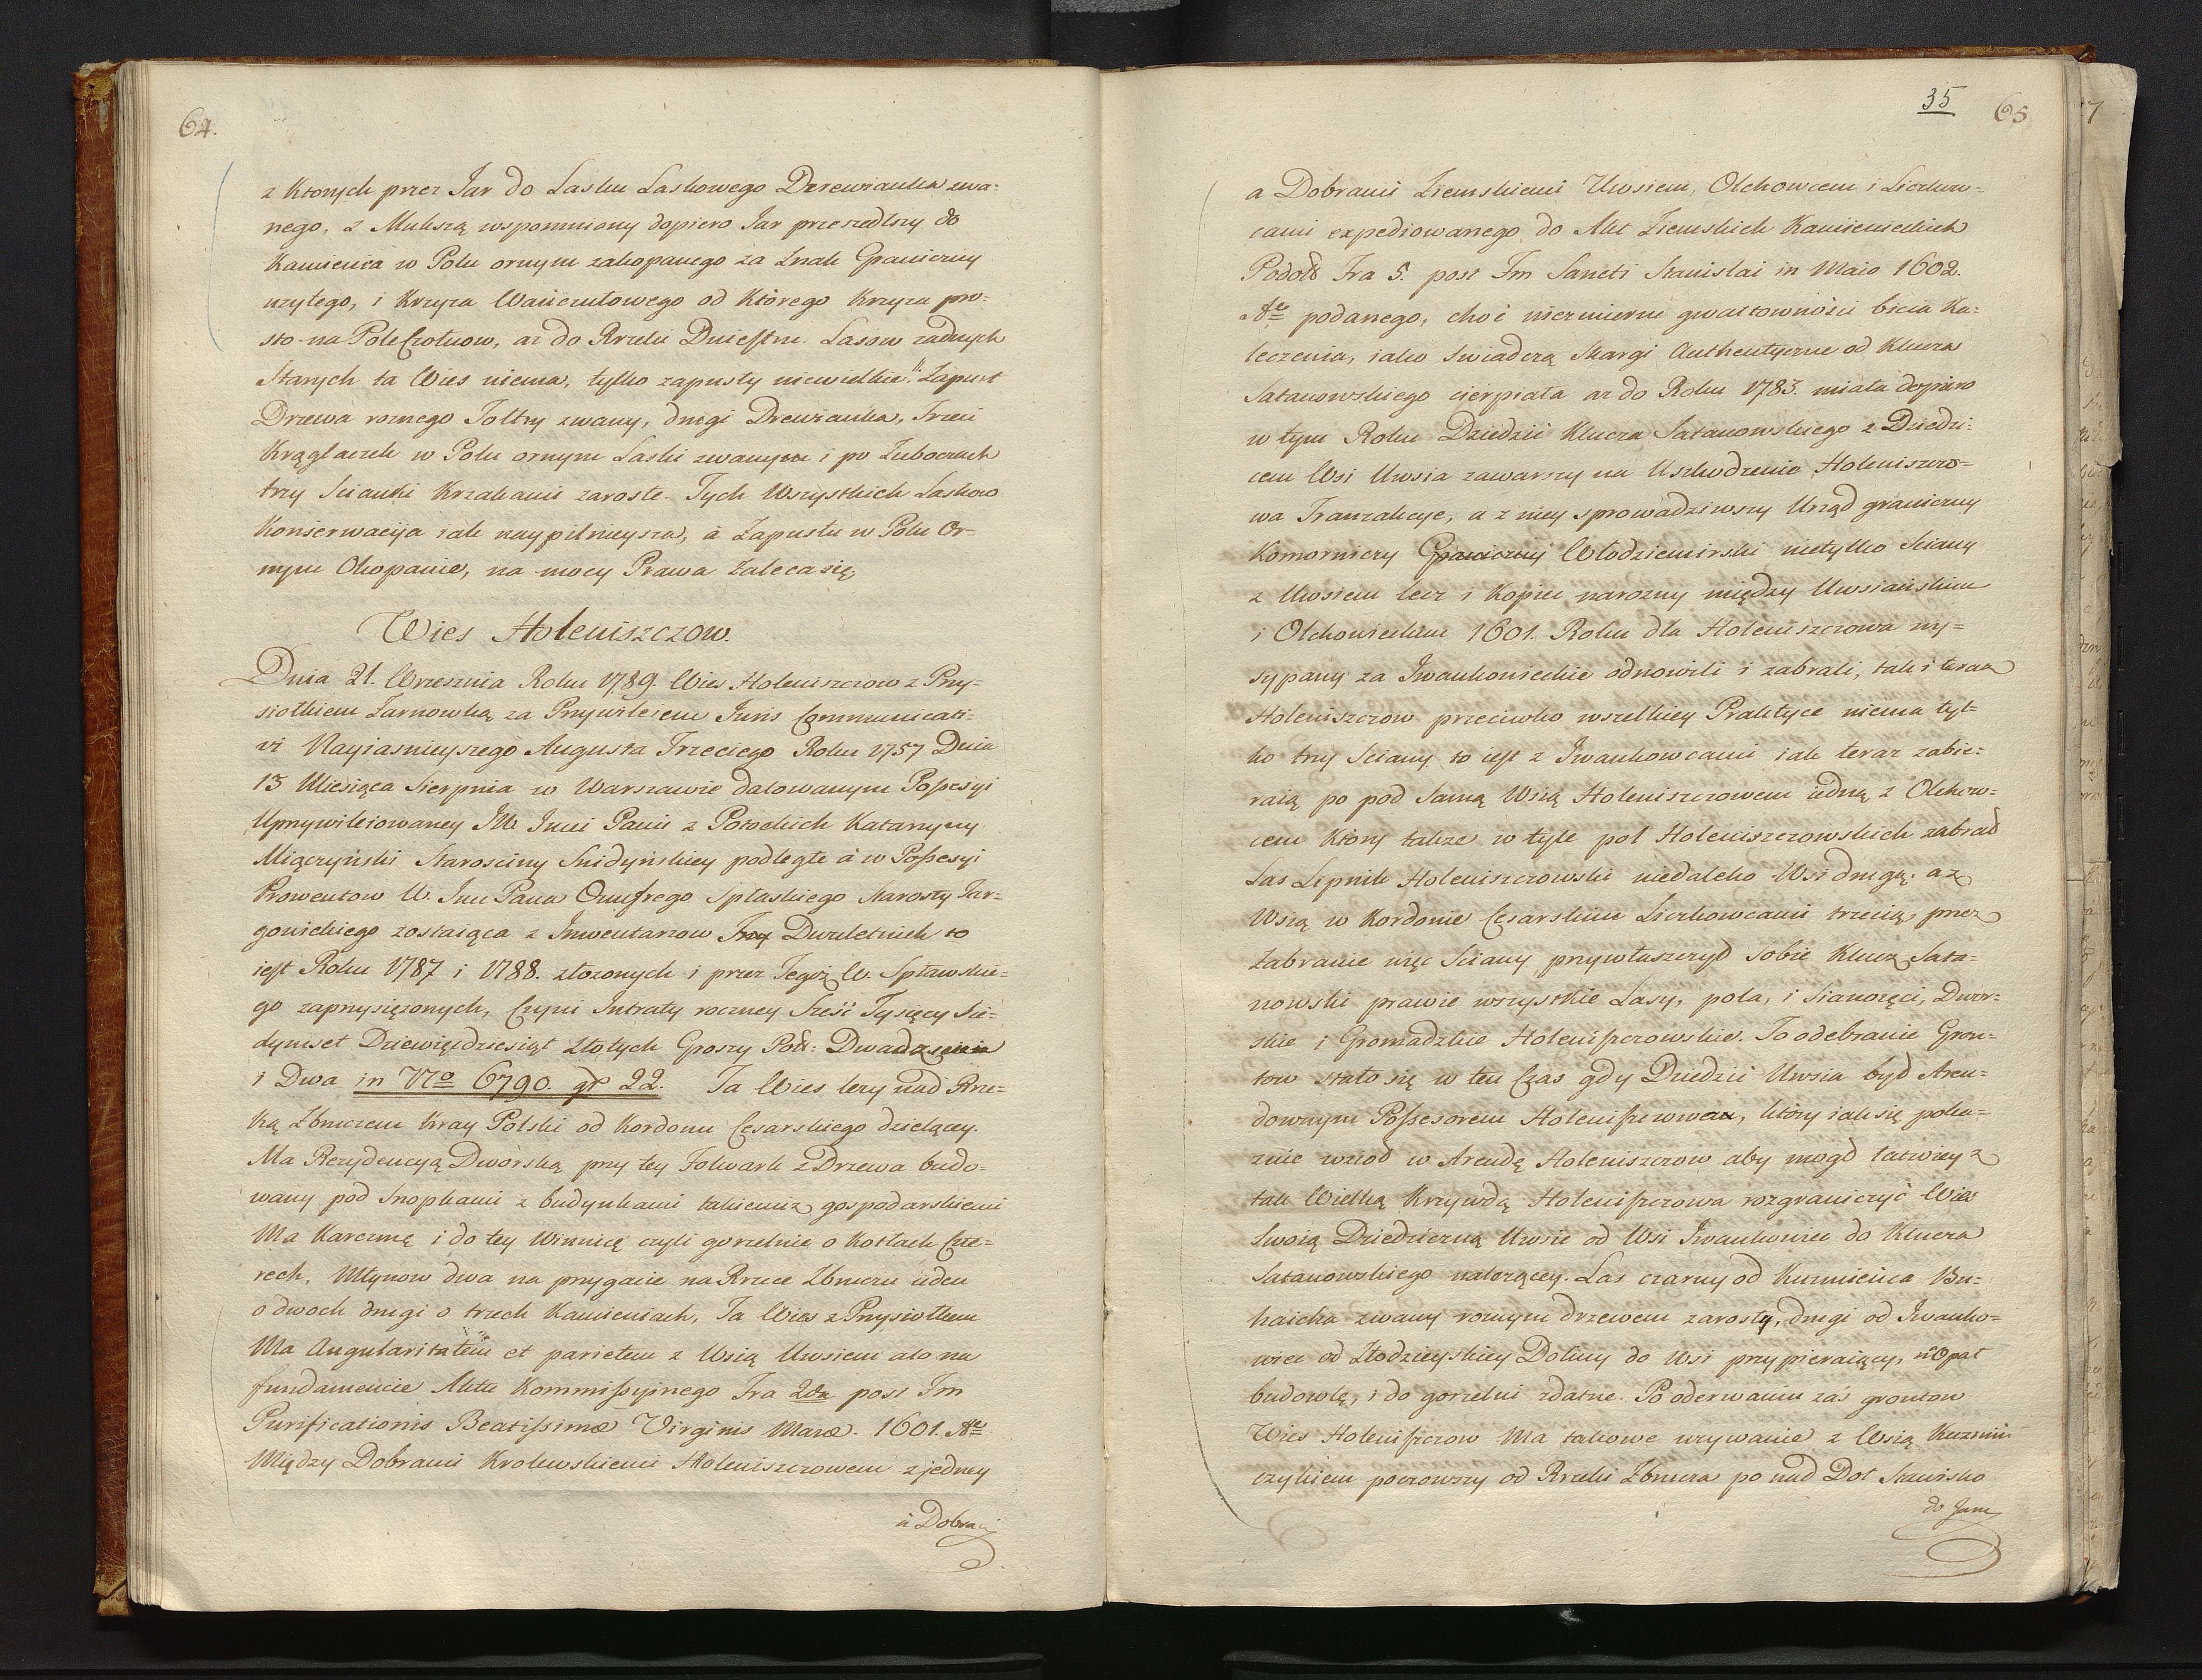 64.
z Ktorych przez Jar do Lasku Laskowego Drzewianka zwa=
nego, z Mukszą wspomniony dopiero Jar przeszedłszy do
Kamienia w Polu ornym zakopanego za Znak Graniczny
uzytego, i Krzyza Wańczutowego od Którego Krzyza pro=
sto na Pole Czołnow, az do Rzeki Dniestru. Lasow zadnych
Starych ta Wies niema, tylko zapusty niewielkie." Zapust
Drzewa roznego Tołtry zwany, drugi Drewianka, Trzeci
Krąglaczek w Polu ornym Laski zwanym i po Zuboczach
trzy Scianki Krzakami zarosłe. Tych Wszystkich Laskow
Konserwacyja iak naypilnieysza, á Zapustu w Polu Or-
nym Okopanie, na mocy Prawa Zaleca się,
Wies Holeniszczow.
Dnia 21. Wrzesznia Roku 1789. Wies Holeniszczow z Przy=
siołkiem Zarnowką za Przywileiem Juris Communicati=
vi Nayiasnieyszego Augusta Trzeciego Roku 1757 Dnia
13 Miesiąca Sierpnia w Warszawie datowanym Possesyi
Uprzywileiowaney JW. Jmci Pani z Potockich Katarzyny
Miączyński Starosciny Snidyńskiey podległe á w Possesyi
Prowentow W. Jmć Pana Onufrego Spławskiego Starosty Tar=
gowickiego zostaiąca z Inwentarzow Trzy Dwuletnich to
iest Roku 1787 i 1788. złozonych i przez Tegoż W. Spławskie=
go zaprzysięzonych, Czyni Intraty roczney Sześć Tysięcy Sie=
dymset Dziewięćdziesiąt Złotych Groszy Pols: Dwadziescia
i Dwa in No 6790. gr 22. Ta Wies lezy nad Rze=
ką Zbruczem Kray Polski od Kordonu Cesarskiego dzielącey.
Ma Rezydencyą Dworską przy tey Folwark z Drzewa budo=
wany pod Snopkami z budynkami takiemiz gospodarskiemi
Ma Karczmę i do tey Winnicę czyli gorzelnie o Kotłach Czte=
rech, Młynow dwa na przygacie na Rzece Zbruczu ieden
o dwoch drugi o trzech Kamieniach, Ta Wies z Przysiołkiem
Ma Angularitatem et parietem z Wsią Uwsiem a to na
fundamencie Aktu Kommissyinego Fra 2da post Fm
Purificationis Beatissimæ Virginis Mariæ. 1601. Ao
Między Dobrami Krolewskiemi Holeniszczowem z jedney
á Dobrami
35
65
a Dobrami Ziemskiemi Uwsiem, Olchowcem i Liczkow=
cami expediowanego do Akt Ziemskich Kamienieckich
Podols Fra 5. post Fm Sancti Stanislai in Maio 1602.
Ao podanego, choć niezmierne gwałtownosci bicia Ka=
leczenia, iako swiadczą Skargi Authentyczne od Klucza
Satanowskiego cierpiała az do Roku 1783. miała dopiero
w tym Roku Dziedzic Klucza Satanowskiego z Dziedzi=
cem Wsi Uwsia zawarszy na Uszkodzenie Holeniszczo=
wa Tranzakcye, a z niey sprowadziwszy Urząd graniczny
Komorniczy Graniczny Włodziemirski nietylko Sciany
z Uwsiem lecz i Kopiec narozny między Uwsiańskim
i Olchowieckim 1601. Roku dla Holeniszczowa wy=
sypany za Iwankowieckie odnowili i zabrali, tak i teraz
Holeniszczow przeciwko wszelkiey Praktyce niema tyl=
ko trzy Sciany to iest z Iwankowcami iak teraz zabie=
raią po pod Samą Wsią Holeniszczowem iedną z Olchow=
cem Który takze w tyle pol Holeniszczowskich zabrał
Las Lipnik Holeniszczowski niedaleko Wsi drugą. a z
Wsią w Kordonie Cesarskim Liczkowcami trzecią przez
Zabranie więc Sciany przywłaszczył Sobie Klucz Sata=
nowski prawie wszystkie Lasy, pola, i Sianozęci, Dwor=
skie i Gromadzkie Holeniszczowskie. To odebranie Gron=
tow stało się w ten Czas gdy Dziedzic Uwsia był Aren=
downym Possesorem Holeniszczowa, który iak się poka=
zuie wziął w Arendę Holeniszczow aby mógł łatwiey z
tak Wielką Krzywdą Holeniszczowa rozgraniczyć Wies
Swoią Dziedziczną Uwsie od Wsi Iwankowiec do Klucza
Satanowskiego nalezącey. Las czarny od Kuzmińca Bu=
haicha zwany roznym drzewem zarosły, drugi od Iwanko=
wiec od Złodzieyskiey Doliny do Wsi przypieraiący, na Opał
budowlę, i do gorzelni zdatne. Po oderwaniu zaś grontow
Wies Holeniszczow Ma takowe uzywanie z Wsią Kuzmin
czykiem począwszy od Rzeki Zbrucza po nad Doł Stawisko
do Jaru